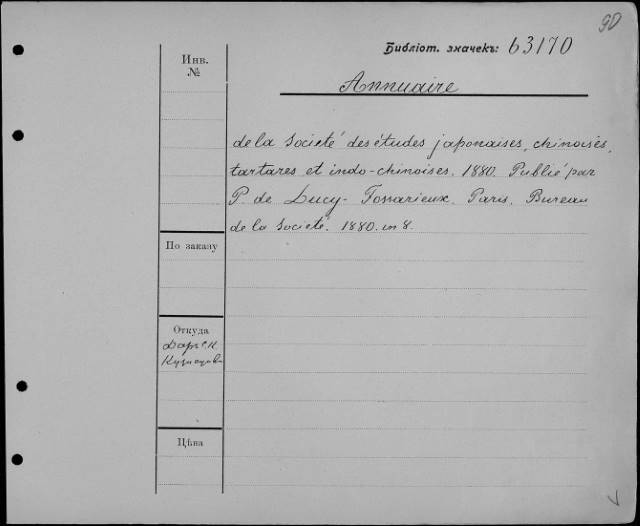 90
Библіот. значекъ: 63170
Инв.
№
Annuaire
de la Societé des études japonaises, chinoises,
tartares et indo-chinoises. 1880. Publié par
P. de Lucy-Fossarieux. Paris. Bureau
de la Societé. 1880. in 8.
По заказу
Откуда
Даръ С. К.
Кузнецова
Цѣна